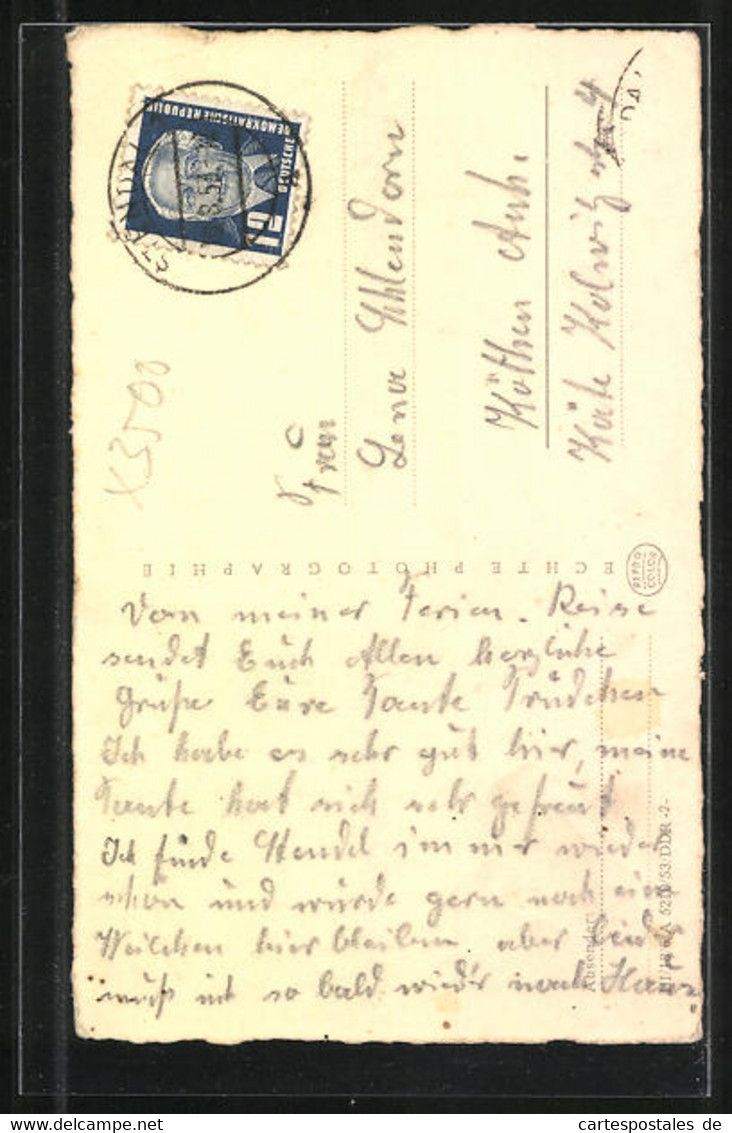 DEUTSCHE
DEMOKRATISCHE REPUBLIK
12
STENDAL
X3500
Frau
Lena Ehlendorn
Köthen Anh.
Käte Kolwitz str 4
ECHTE PHOTOGRAPHIE
REPRO COLOR
Von meiner Ferien-Reise
sendet Euch Allen herzliche
Grüße Eure Tante Trudchen
Ich habe es sehr gut hier, meine
Tante hat sich sehr gefreut
Ich finde Stendal immer wieder
schön und würde gern noch ein
Weilchen hier bleiben aber leider
muß ich so bald wieder nach Haus.
Absender:
/53/DDR -2-
cartespostales de
cartespostales.de